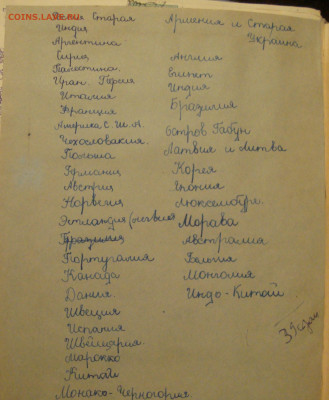 COINS.LAY.RU
Старая
Индия
Аргентина
Сирия
Палестина.
Иран. Персия
Италия
Франция
Америка С.Ш.А.
Чехословакия.
Польша
Германия
Австрия
Норвегия
Эстляндия
Бразилия
Португалия
Канада
Дания.
Швеция
Испания
Швейцария.
Марокко
Китай
Монако-Черногория.
Армения и Старая
Украина
Англия
Египет
Индия
Бразилия
остров Габун
Латвия и Литва
Корея
Япония
Люксембург.
Морава
Австралия
Монголия
Индо-Китай